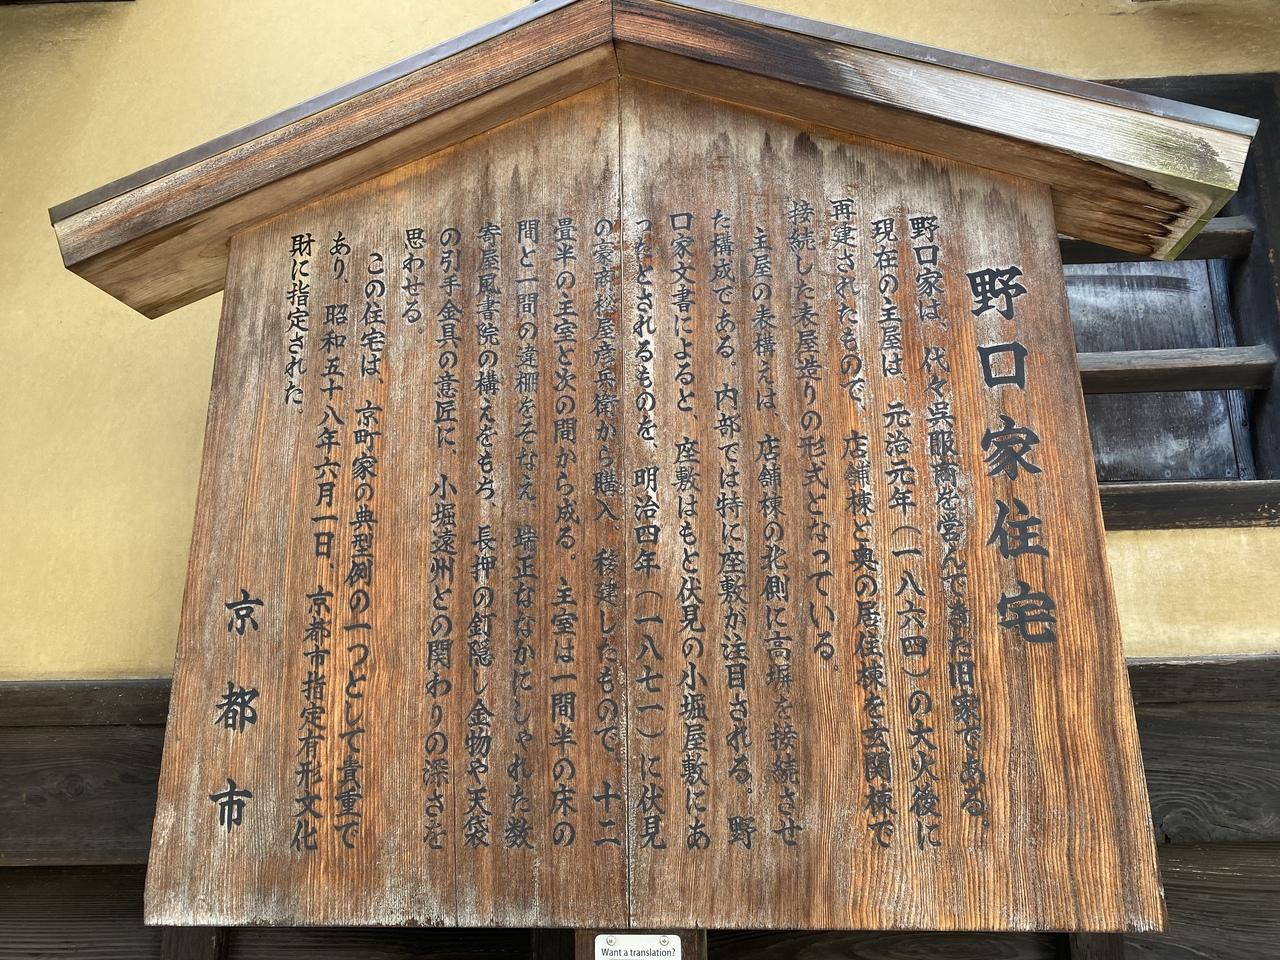 野口家住宅
野口家は、代々呉服商を営んできた旧家である。
現在の主屋は、元治元年（一八六四）の大火後に
再建されたもので、店舗棟と奥の居住棟を玄関棟で
接続した表屋造りの形式となっている。
主屋の表構えは、店舗棟の北側に高塀を接続させ
た構成である。内部では特に座敷が注目される。野
口家文書によると、座敷はもと伏見の小堀屋敷にあ
ったとされるものを、明治四年（一八七一）に伏見
の豪商松屋彦兵衛から購入、移建したもので、十二
畳半の主室と次の間から成る。主室は一間半の床の
間と一間の違棚をそなえ、端正ななかにしゃれた数
寄屋風書院の構えをもち、長押の釘隠し金物や天袋
の引手金具の意匠に、小堀遠州との関わりの深さを
思わせる。
この住宅は、京町家の典型例の一つとして貴重で
あり、昭和五十八年六月一日、京都市指定有形文化
財に指定された。
京都市
Want a translation?